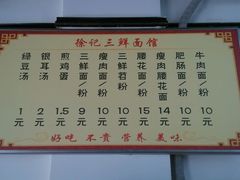 徐记三鲜面馆
绿豆汤 1元
银耳汤 2元
煎鸡蛋 1.5元
三鲜面/粉 9元
瘦肉面/粉 10元
三鲜苕粉 10元
腰花面/粉 15元
瘦肉腰花面 14元
肥肠面/粉 10元
牛肉面/粉 10元
好吃 不贵 营养 美味